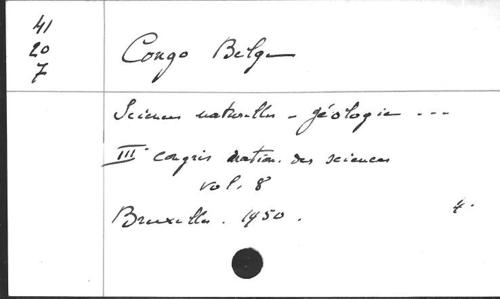 41
20
7
Congo Belge
Sciences naturelles - géologie ---
III congrès nation. des sciences
vol. 8
Bruxelles. 1950. 4.